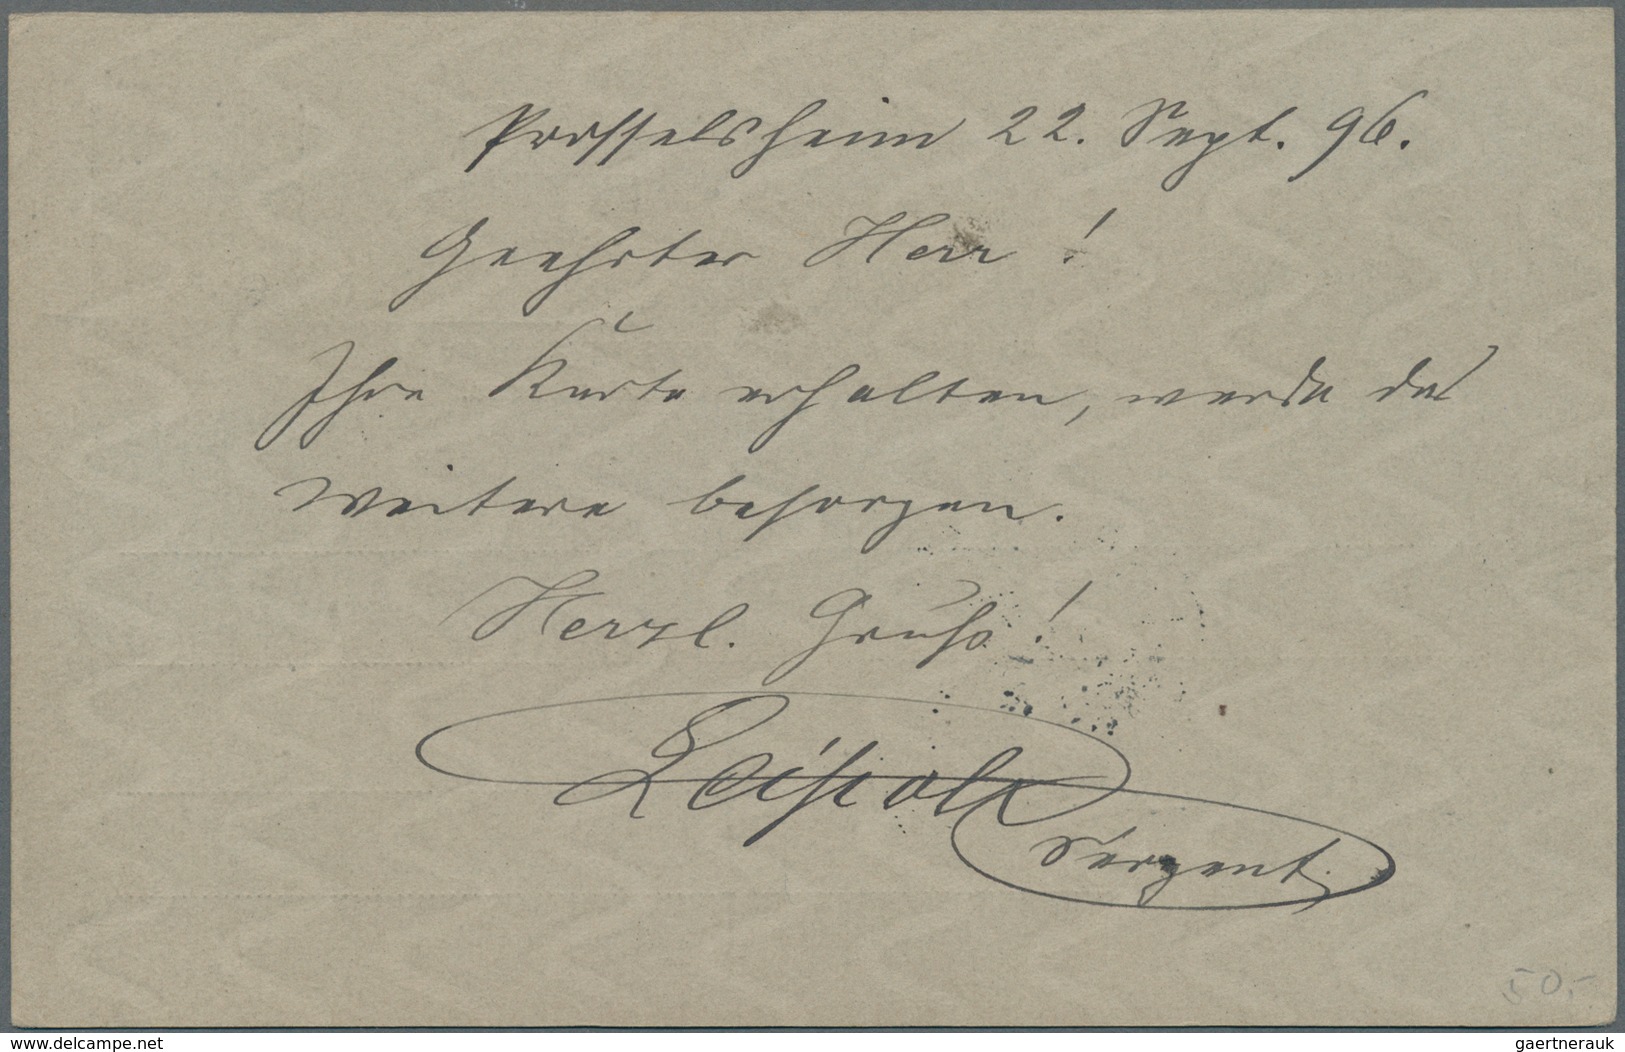 Prosselsheim 22. Sept. 96.
Geehrter Herr!
Ihre Karte erhalten, werde das
Weitere besorgen.
Herzl. Gruß!
Sergent.
50,-
www.delcampe.net
gaertnerauk